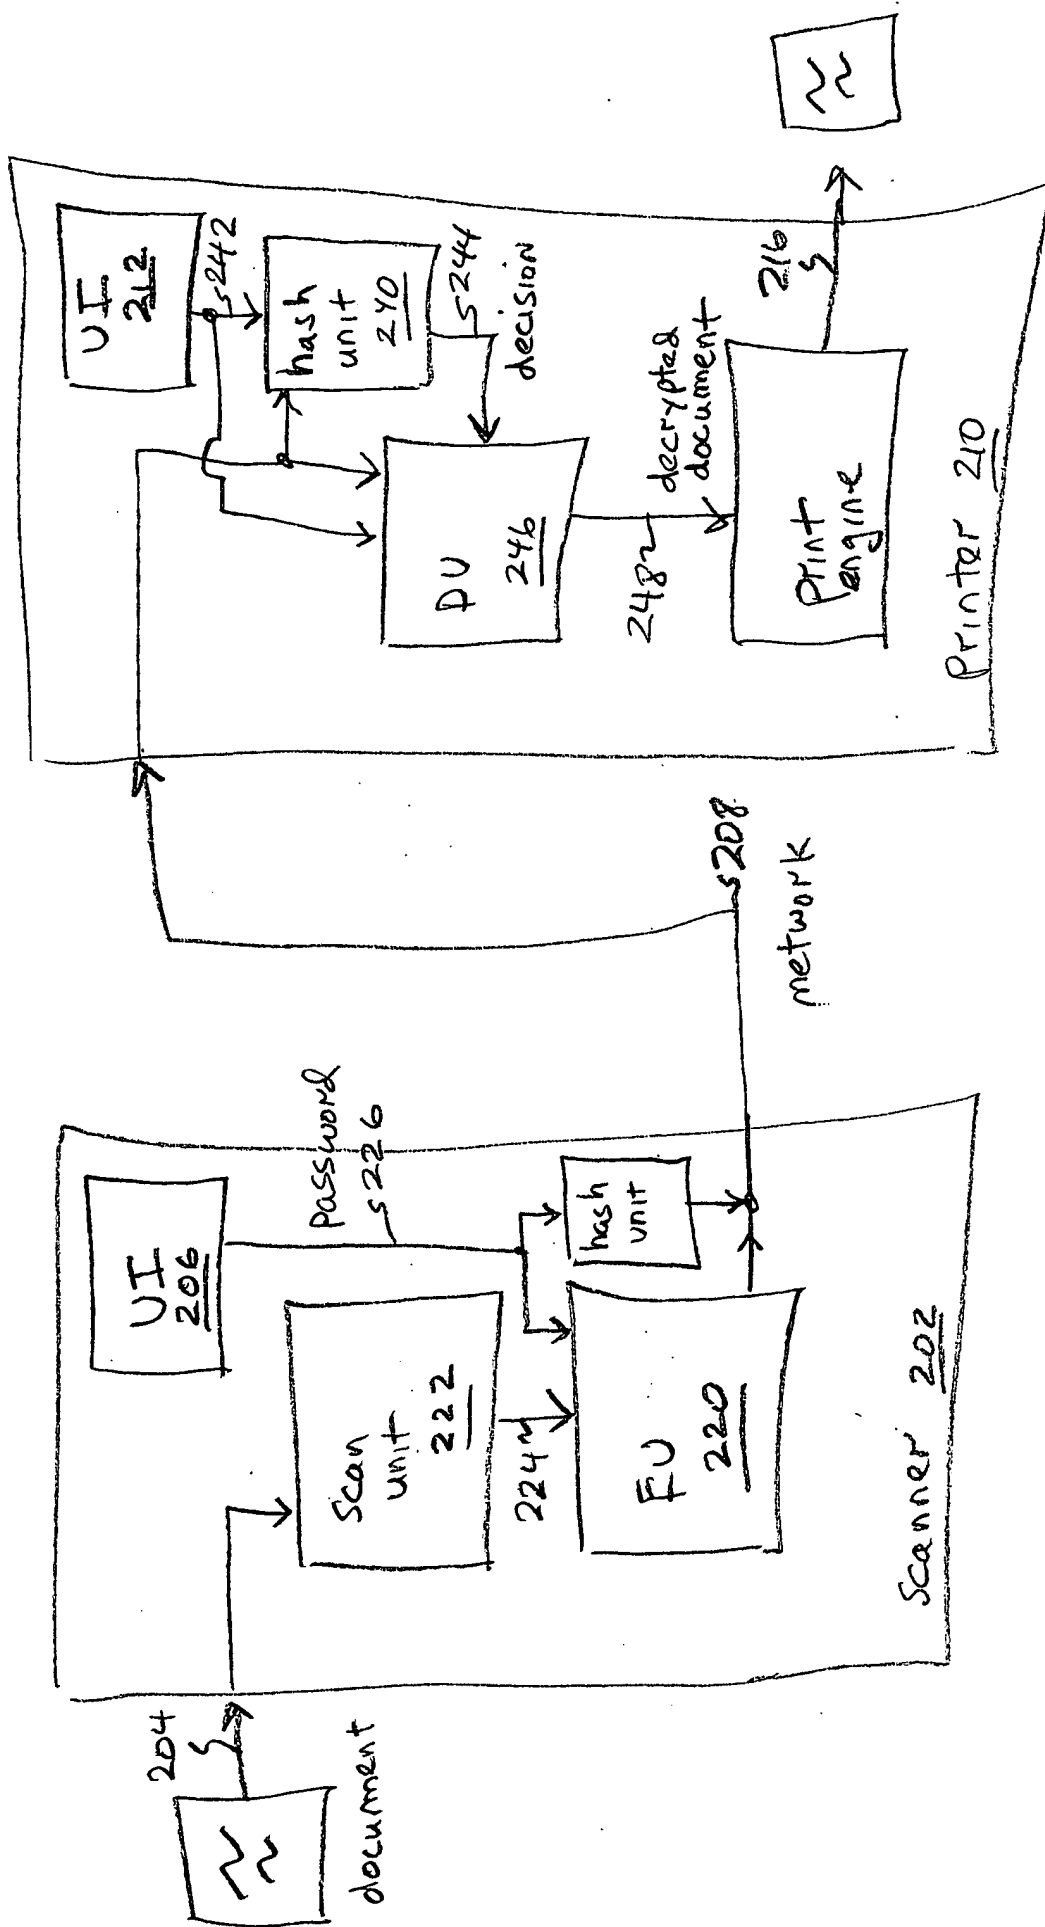 204
document
UI
206
password
226
Scan
unit
222
224
EU
220
hash
unit
Scanner 202
208
network
UI
212
242
hash
unit
240
244
decision
DU
246
248
decrypted
document
Print
engine
216
Printer 210